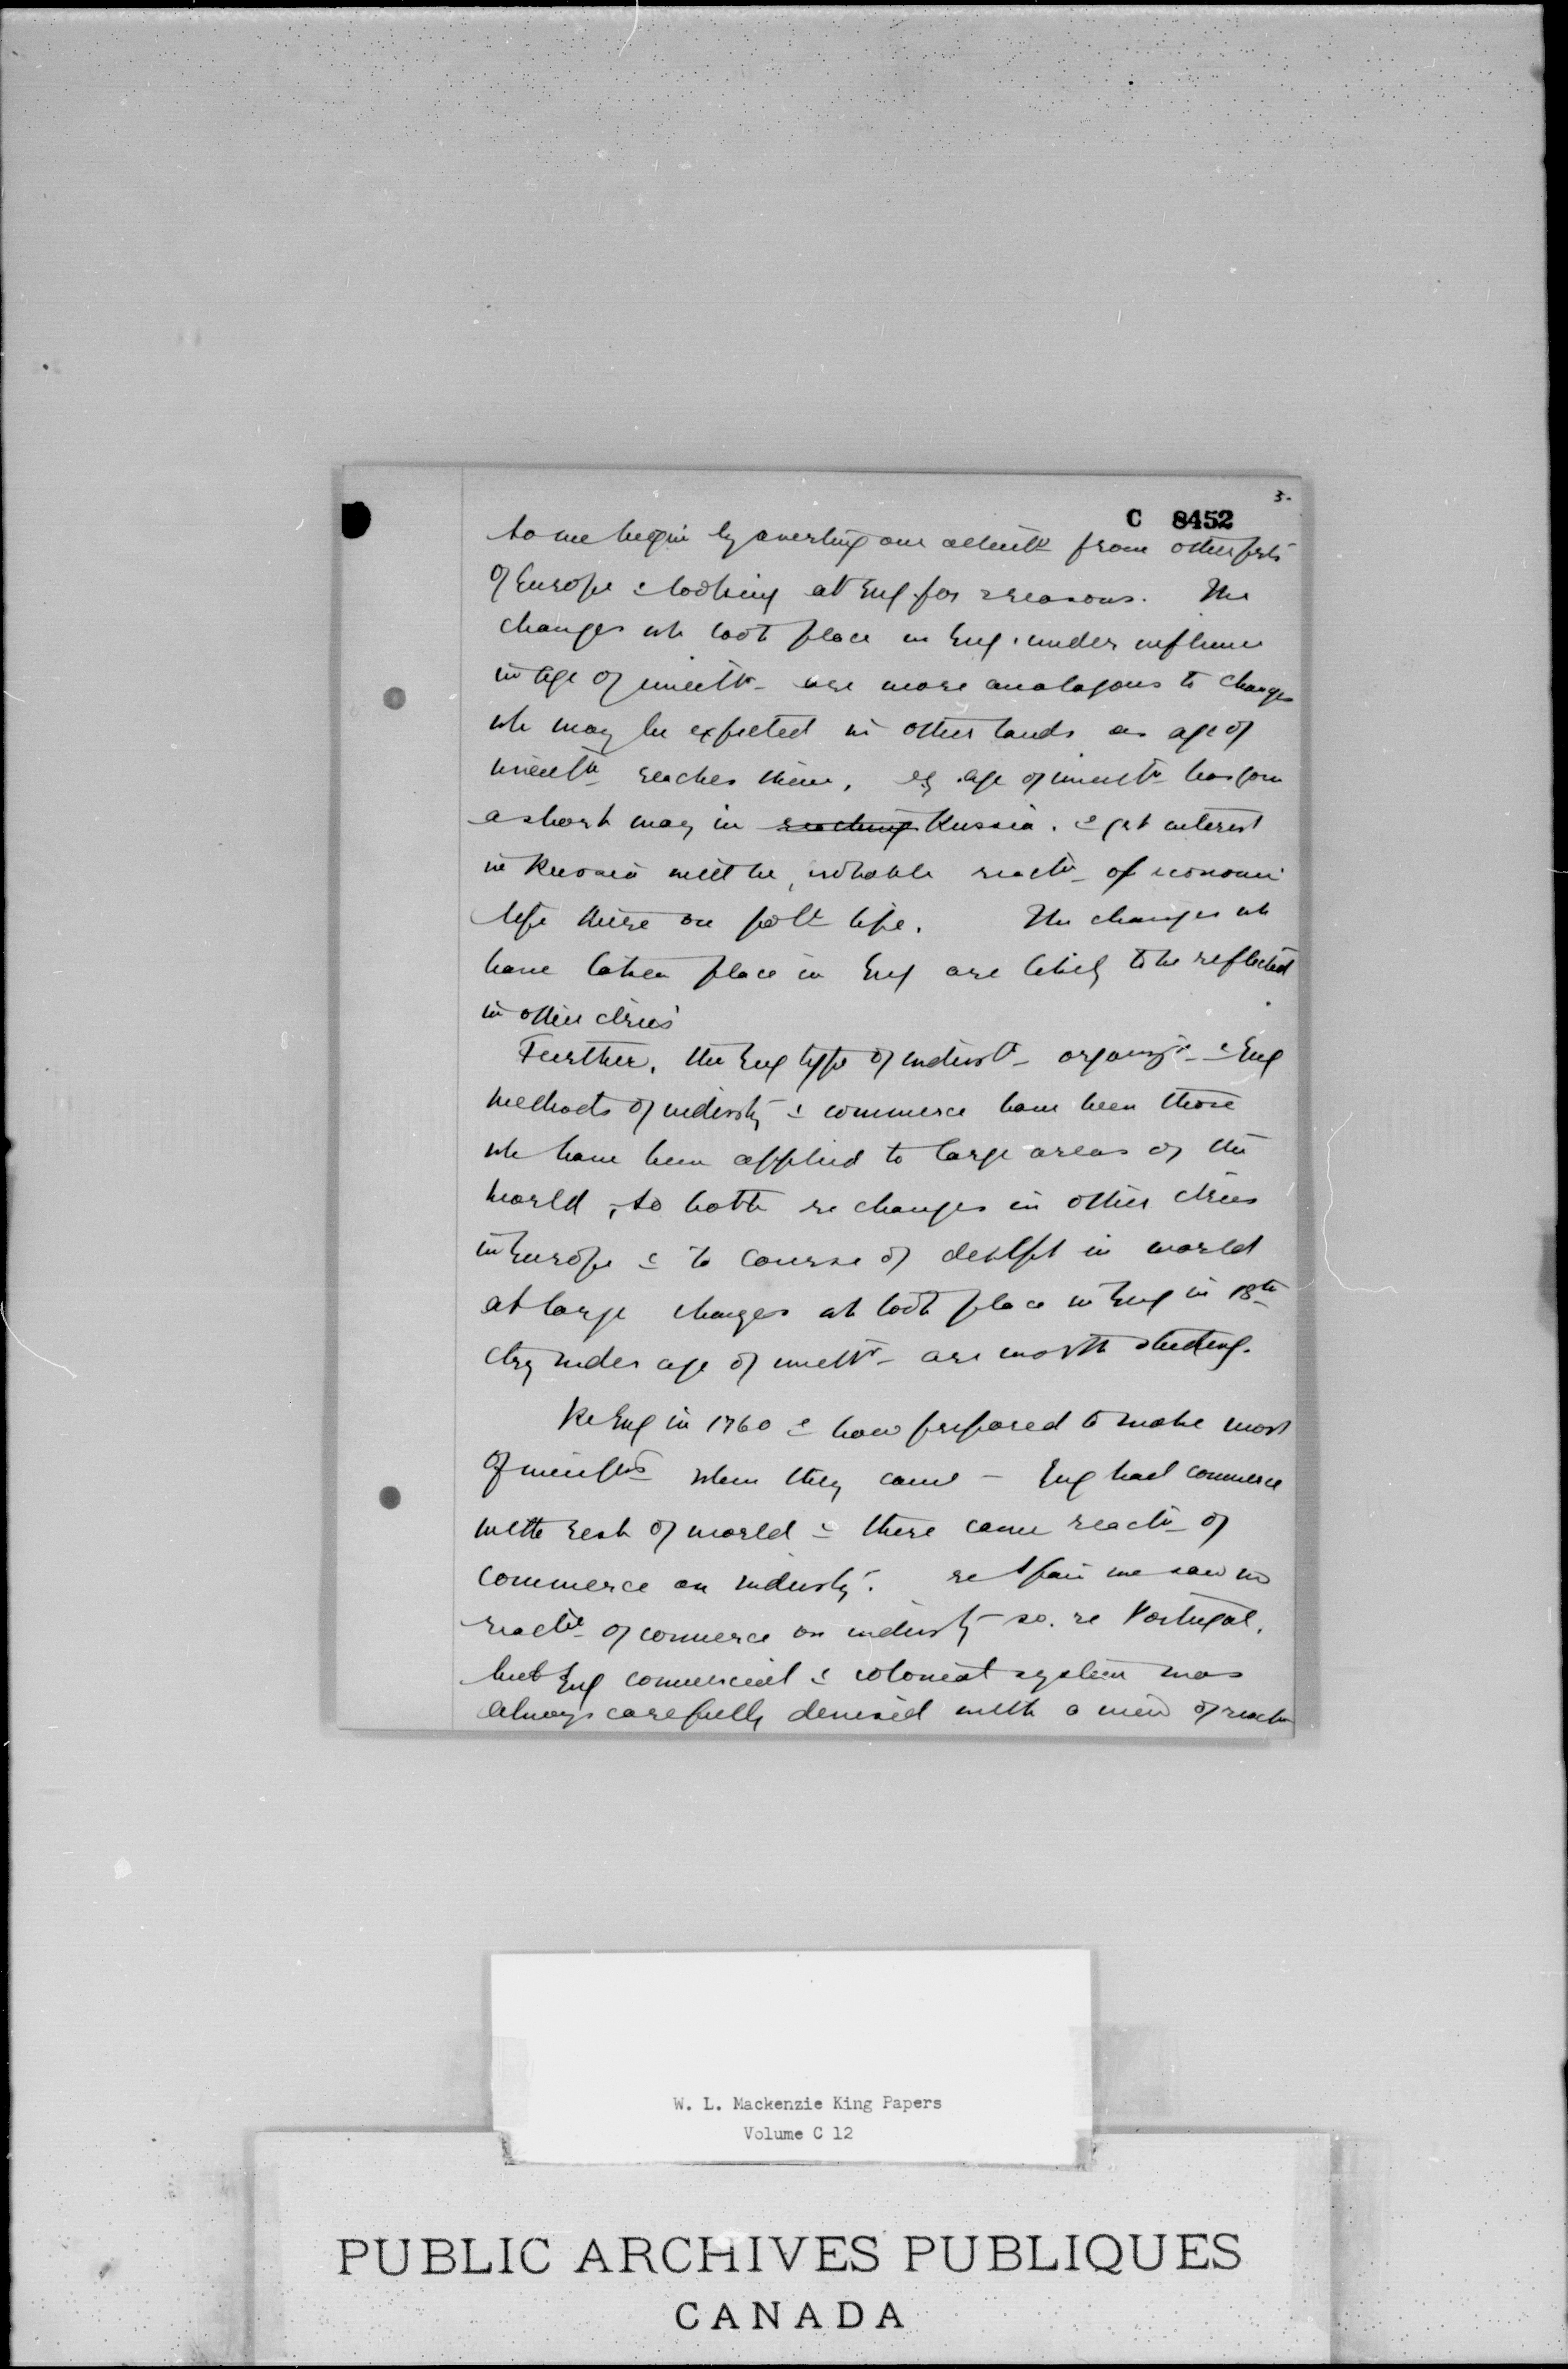 3.
C 8452
So we begin by averting our attentn from other pts
of Europe & looking at Eng. for 2 reasons. The
changes wh took place in Eng. under influence
in age of inventn are more analagous to changes
wh may be expected in other lands as age of
inventn reaches them, eg. age of inventn has gone
a short way in reaching Russia. & grt interest
in Russia will be, notable reactn of economic
life there on polt life. The changes wh
have taken place in Eng are likely to be reflected
in other ctries
Further, the Eng type of industl organizn & Eng
methods of industry & commerce have been those
wh have been applied to large areas of the
world, so both re changes in other ctries
in Europe & to course of develpt in world
at large changes wh took place in Eng in 18th
cty under age of inventn are worth studying.
Re Eng in 1760 & how prepared to make most
of inventns when they came - Eng had commerce
with rest of world & there came reactn of
commerce on industry. re Spain we saw no
reactn of commerce on industry so. re Portugal,
but Eng commercial & colonial system was
always carefully devised with a view of reactn
W. L. Mackenzie King Papers
Volume C 12
PUBLIC ARCHIVES PUBLIQUES
CANADA